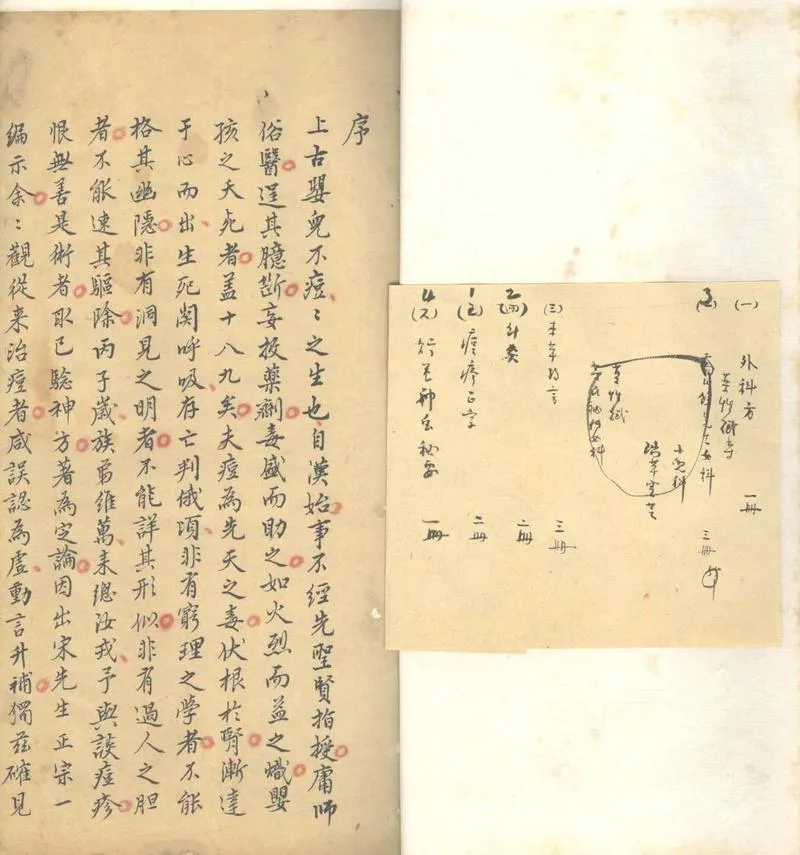 序
上古嬰兒不痘〻之生也自漢始事不經先聖賢指授庸師
俗醫逞其臆斷妄投藥劑毒盛而助之如火烈而益之熾嬰
孩之夭死者蓋十八九矣夫痘為先天之毒伏根於腎漸達
于心而出生死関呼吸存亡判俄頃非有窮理之學者不能
格其幽隱非有洞見之明者不能詳其形似非有過人之胆
者不能速其驅除丙子歲族勇維萬來總汝戎予與談痘疹
恨無善是術者取已驗神方著為定論因出宋先生正宗一
編示余〻觀從来治痘者咸誤認為虛動言升補獨茲確見
(一) 外科方 一冊
女科 三冊
小兒科
(三) 三冊
2(四) 針灸 二冊
1(五) 痘疹正宗 二冊
4(六) 一冊